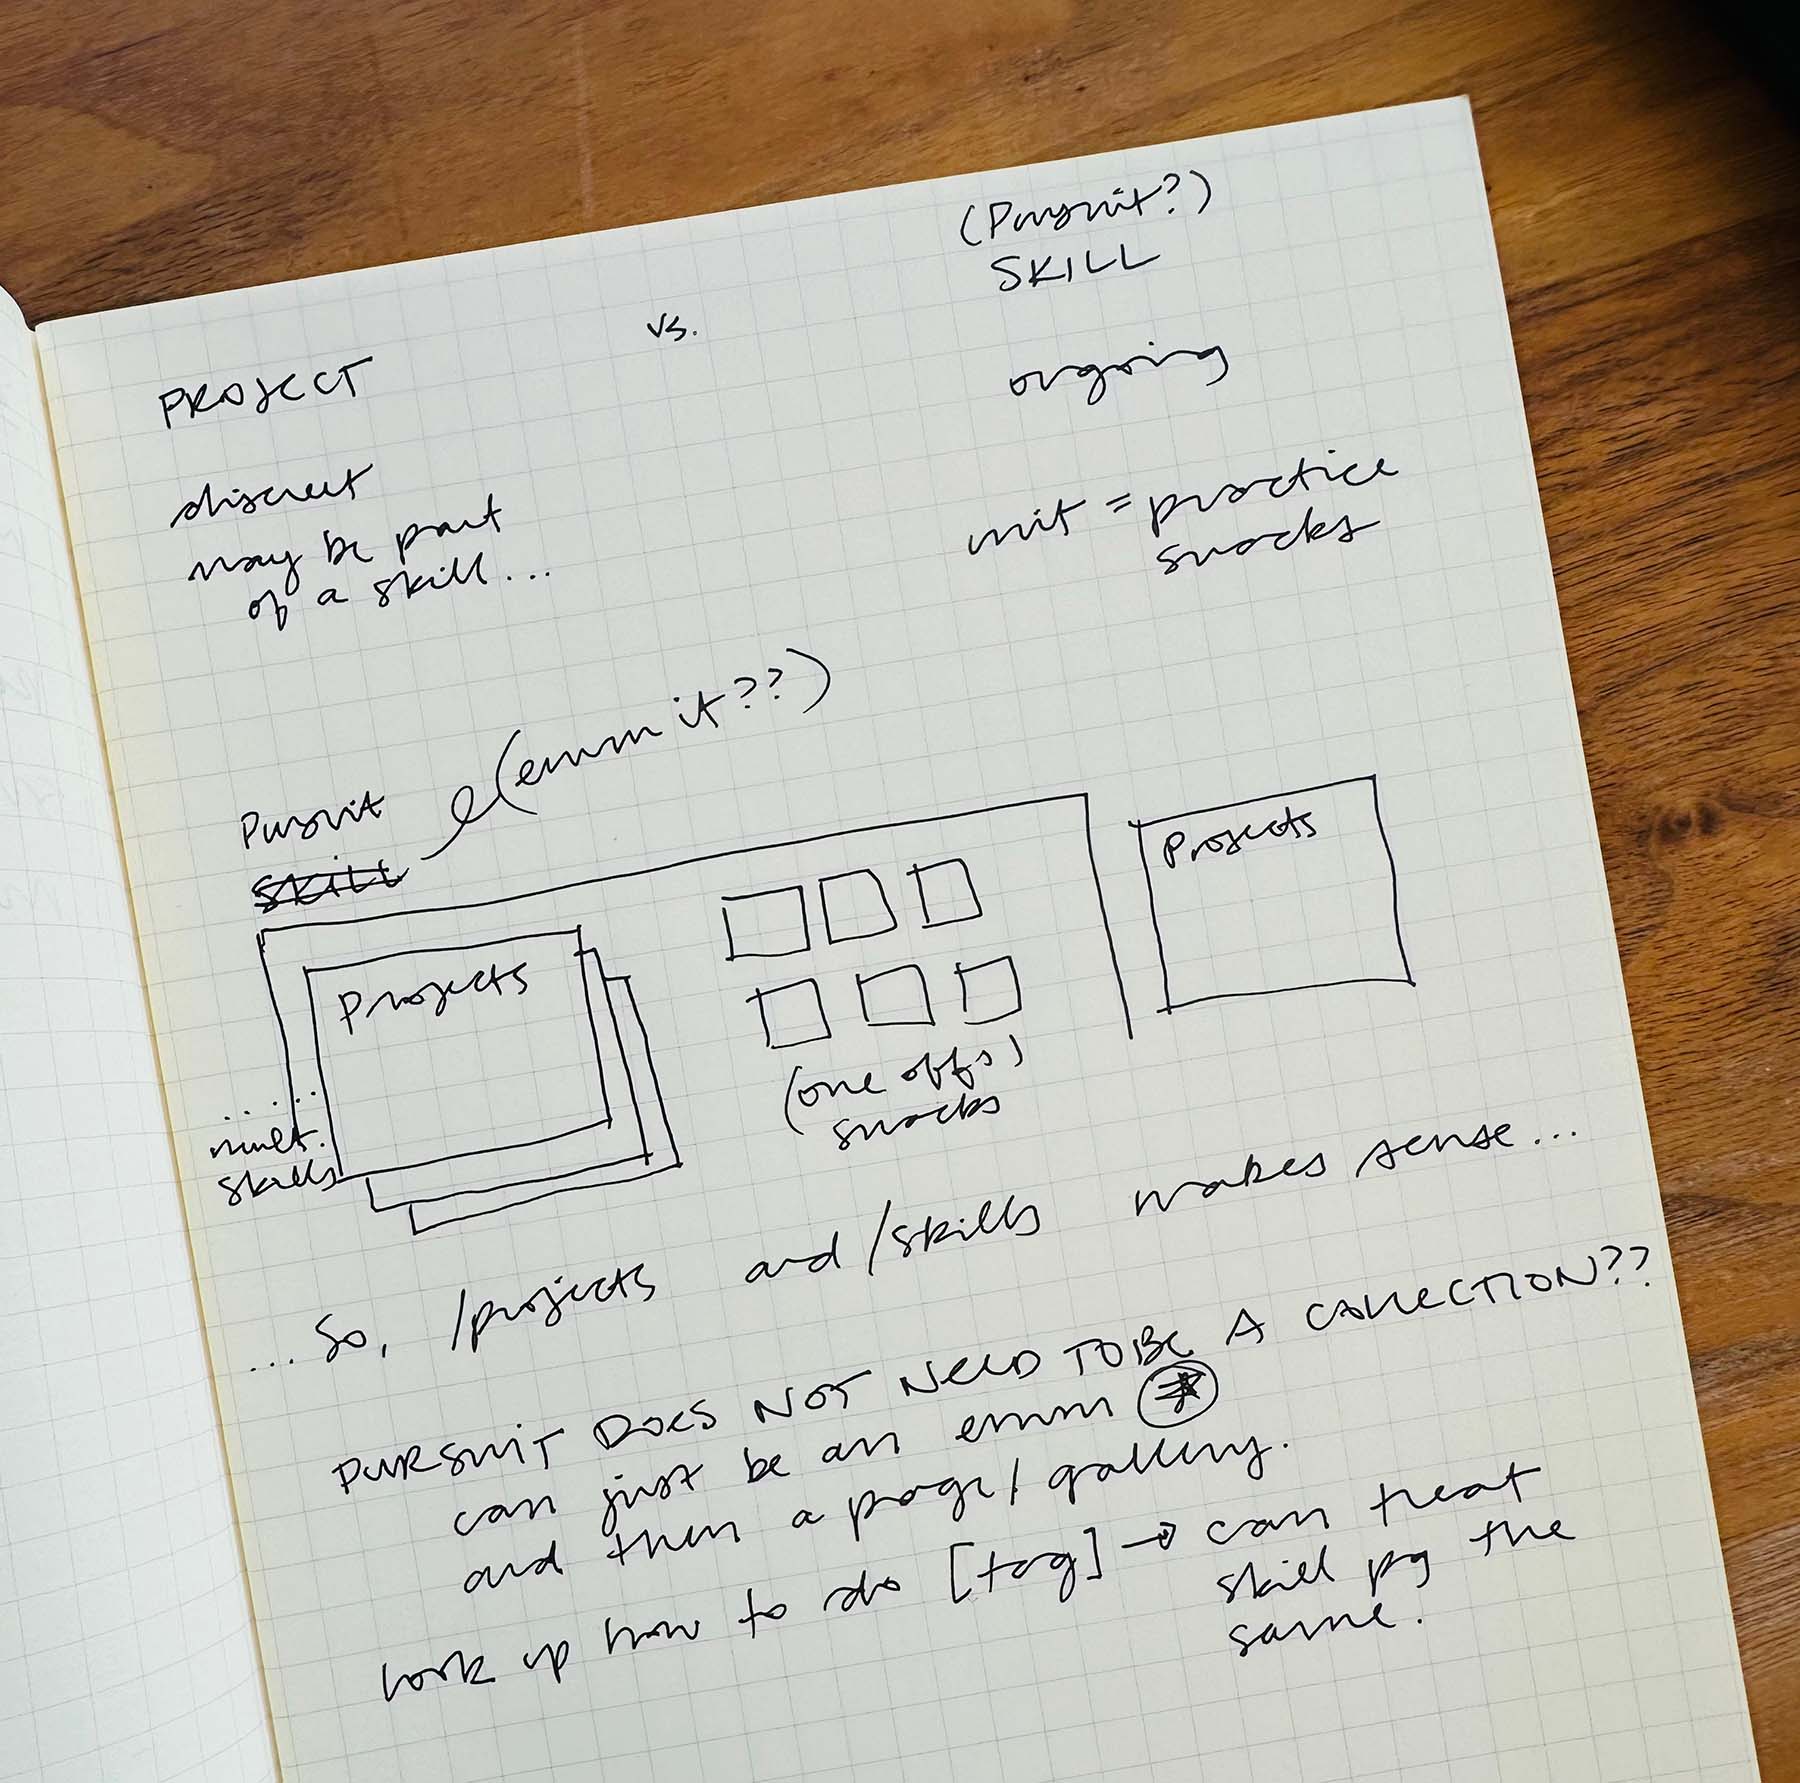 (Pursuit?)
SKILL
vs.
PROJECT
ongoing
discreet
may be part
of a skill...
unit = practice
snacks
(enum it??)
Pursuit
SKILL
Projects
Projects
(one offs)
snacks
.....
mult.
skills
... So, /projects and /skills makes sense...
PURSUIT DOES NOT NEED TO BE A COLLECTION??
can just be an enum
and then a page/gallery.
look up how to do [tag] → can treat
skill pg the
same.